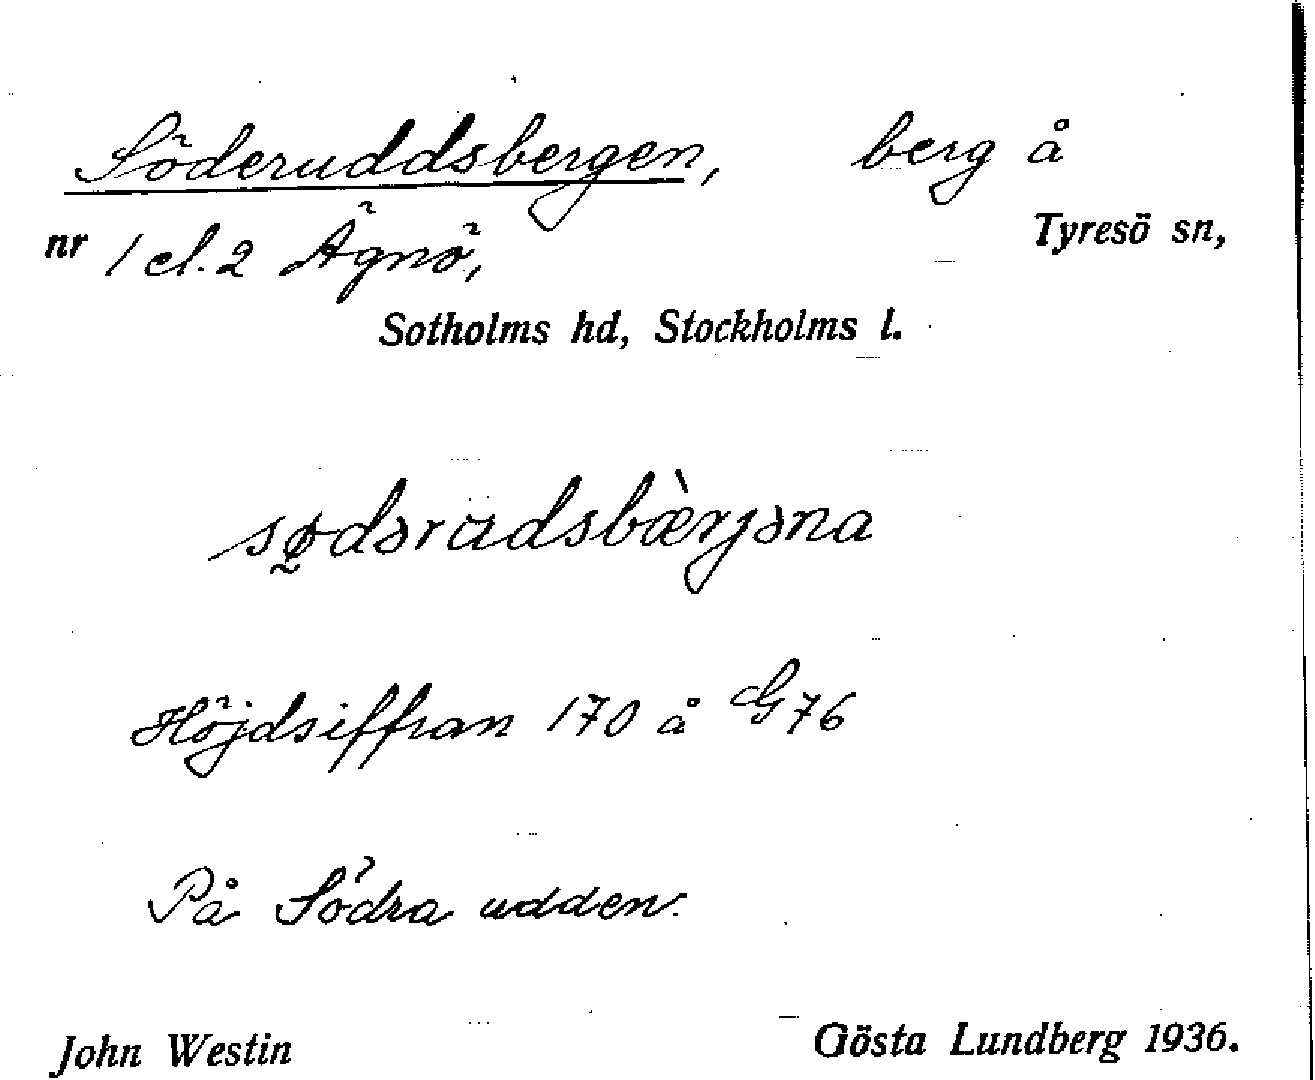 Söderuddsbergen, berg å
nr 1 el. 2 Ägnö, Tyresö sn,
Sotholms hd, Stockholms l.
sødərädsbæ̀rjəna
Höjdsiffran 170 å G76
På Södra udden.
John Westin Gösta Lundberg 1936.